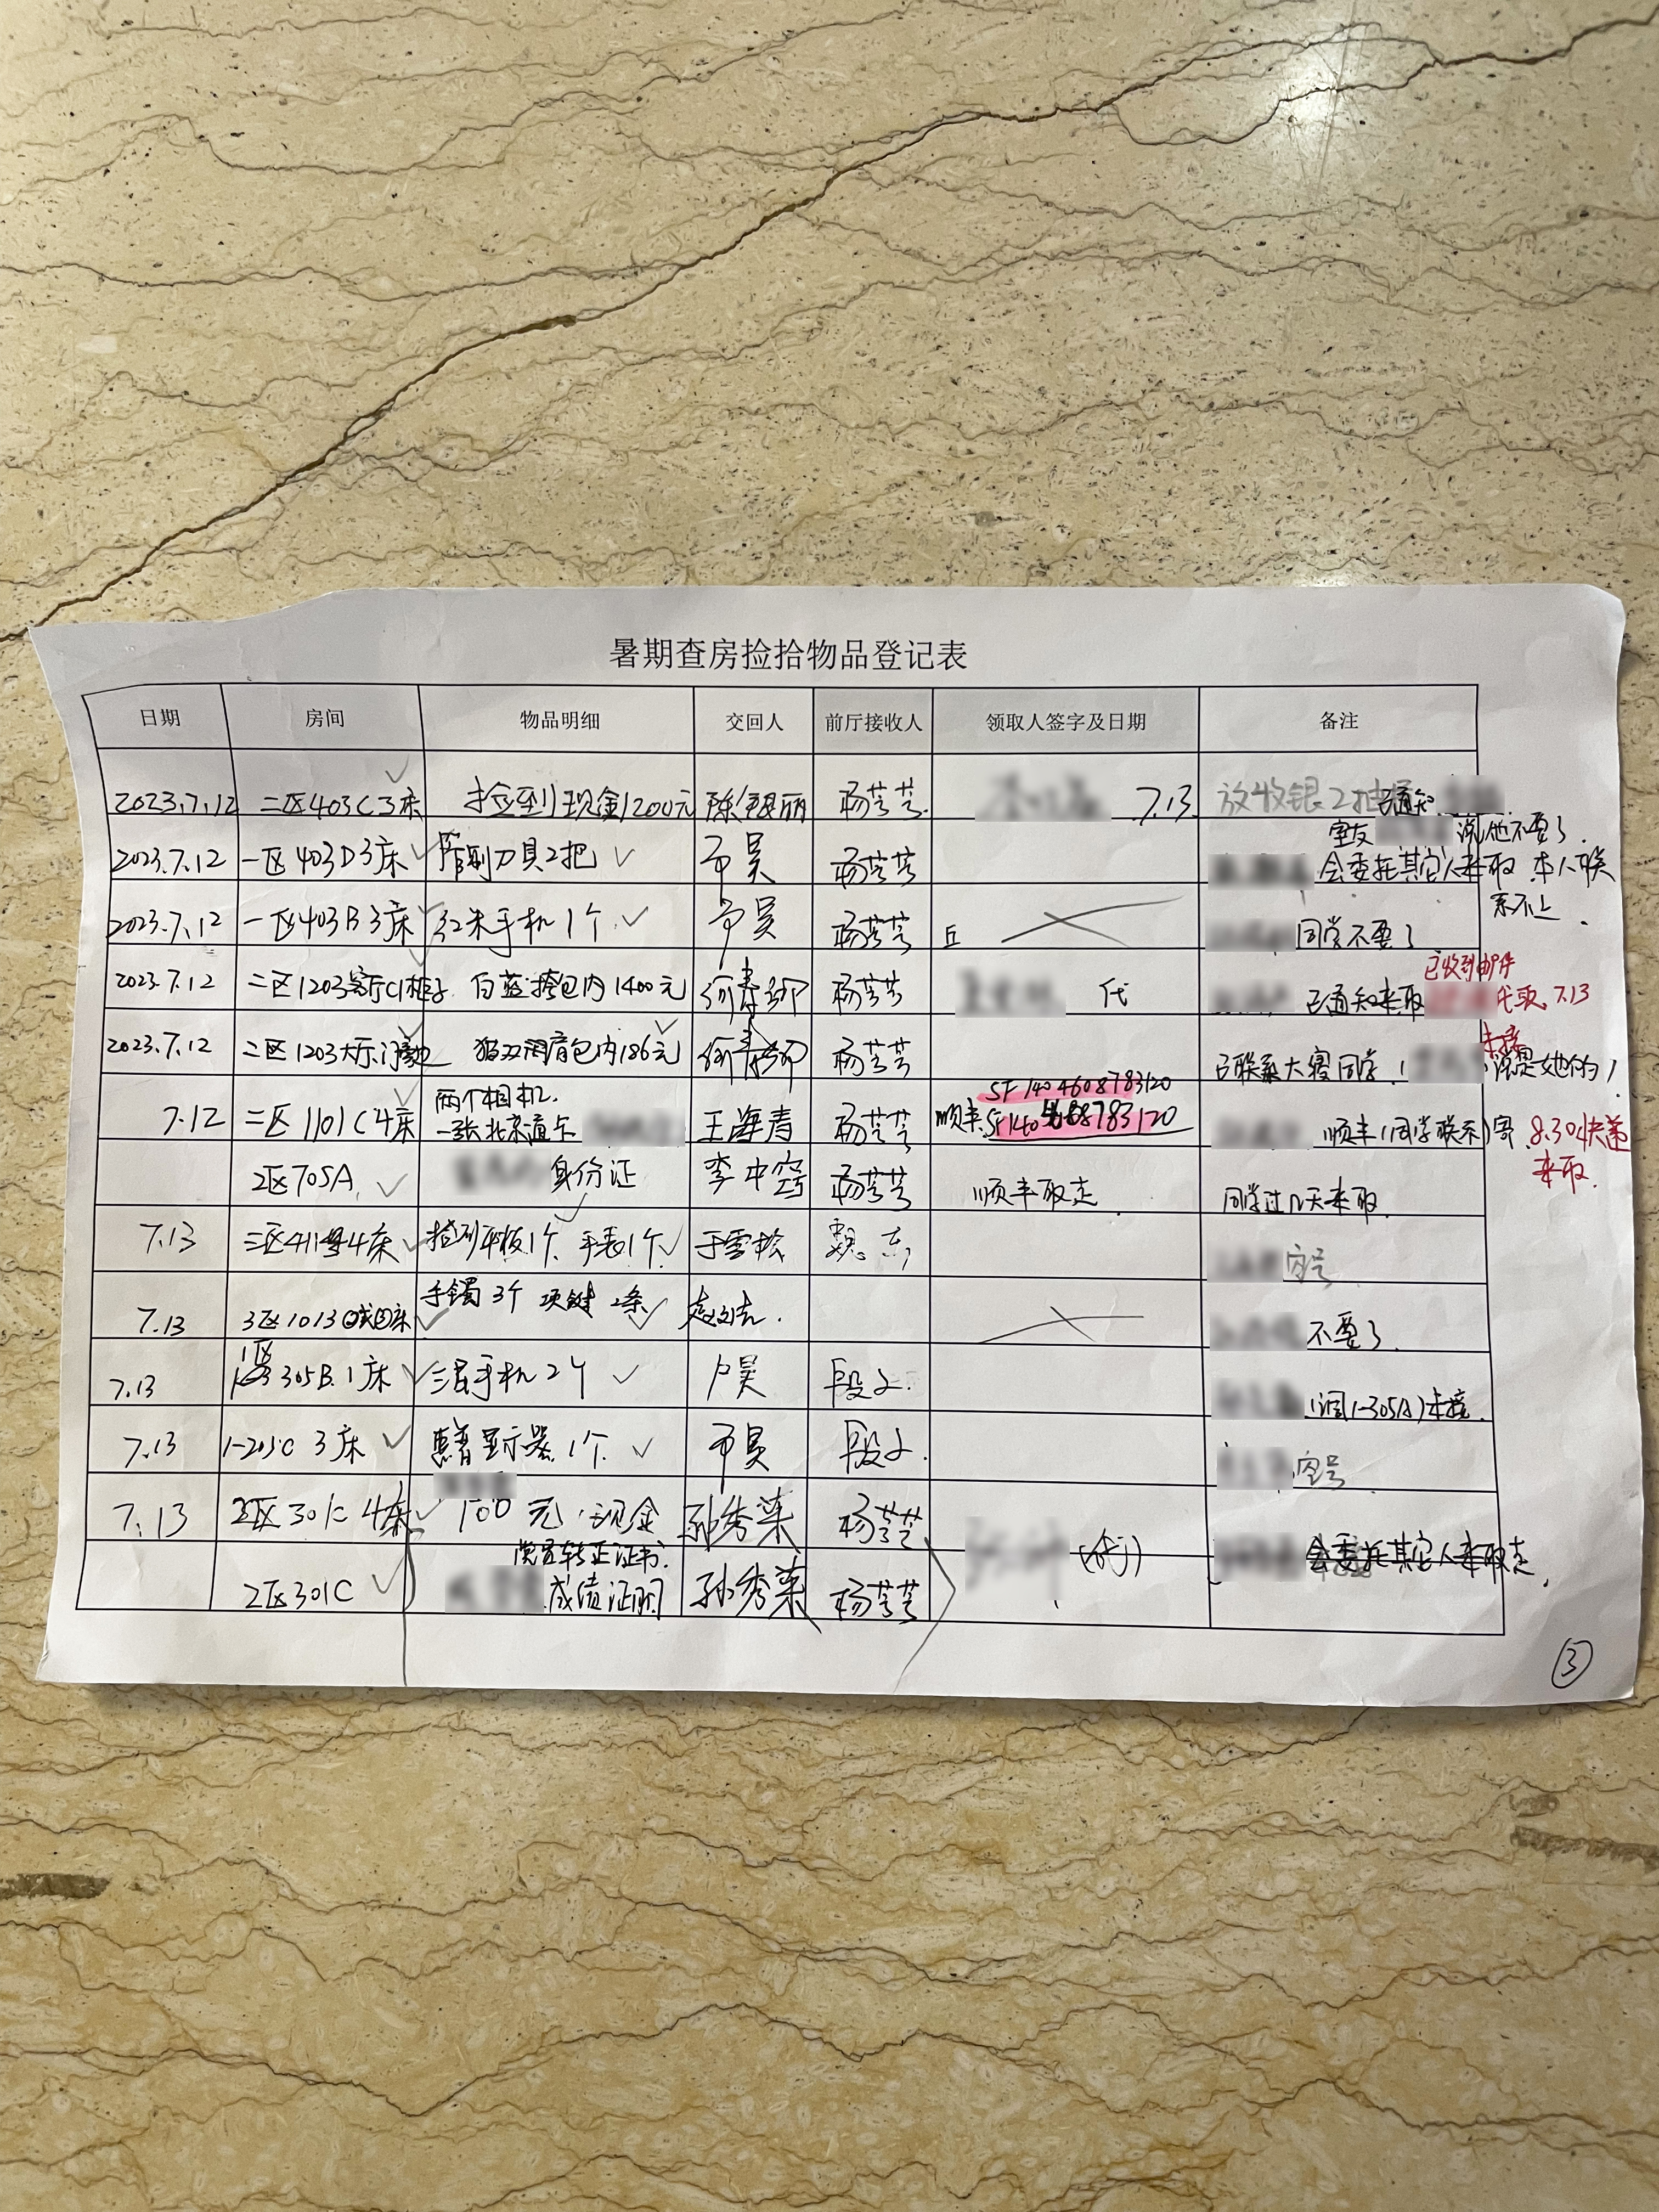 暑期查房捡拾物品登记表
日期 房间 物品明细 交回人 前厅接收人 领取人签字及日期 备注
2023.7.12 二区403C3床 捡到现金1200元 陈银丽 杨芸芸 7.13. 放收银2抽 已通知
室友 说他不要了.
2023.7.12 一区403D3床 管制刀具2把 杨芸芸 会委托其它人来取 本人联
系不上.
2023.7.12 一区403B3床 红米手机1个 杨芸芸 同学不要了
已收到邮件
2023.7.12 二区1203客厅C1柜子 白蓝挎包内1400元 杨芸芸 代 已通知来取 代取 7.13
未接
2023.7.12 二区1203大厅门旁地 双肩背包内186元 杨芸芸 已联系大寝同学 说是她的
SF1404608783120
7.12 二区1101C4床 两个相机.
一张北京通卡 王海青 杨芸芸 顺丰SF1404608783120 顺丰(同学联系)寄 8.30快递
来取.
2区705A 身份证 李中窍 杨芸芸 顺丰取走 同学过几天来取
7.13 三区411 4床 捡到平板1个 手表1个 于雪松 魏 空号
7.13 3区1013 床 手镯3个 项链2条 不要了
1区
7.13 305B.1床 三星手机2个 卢昊 段 (调1-305A)未接.
7.13 1-205C 3床 惠普显示器1个 段 空号
7.13 2区301C 4床 100元现金 孙秀荣 杨芸芸 (代) 会委托其它人来取走.
党员转正证书.
2区301C 成绩证明 孙秀荣 杨芸芸
③